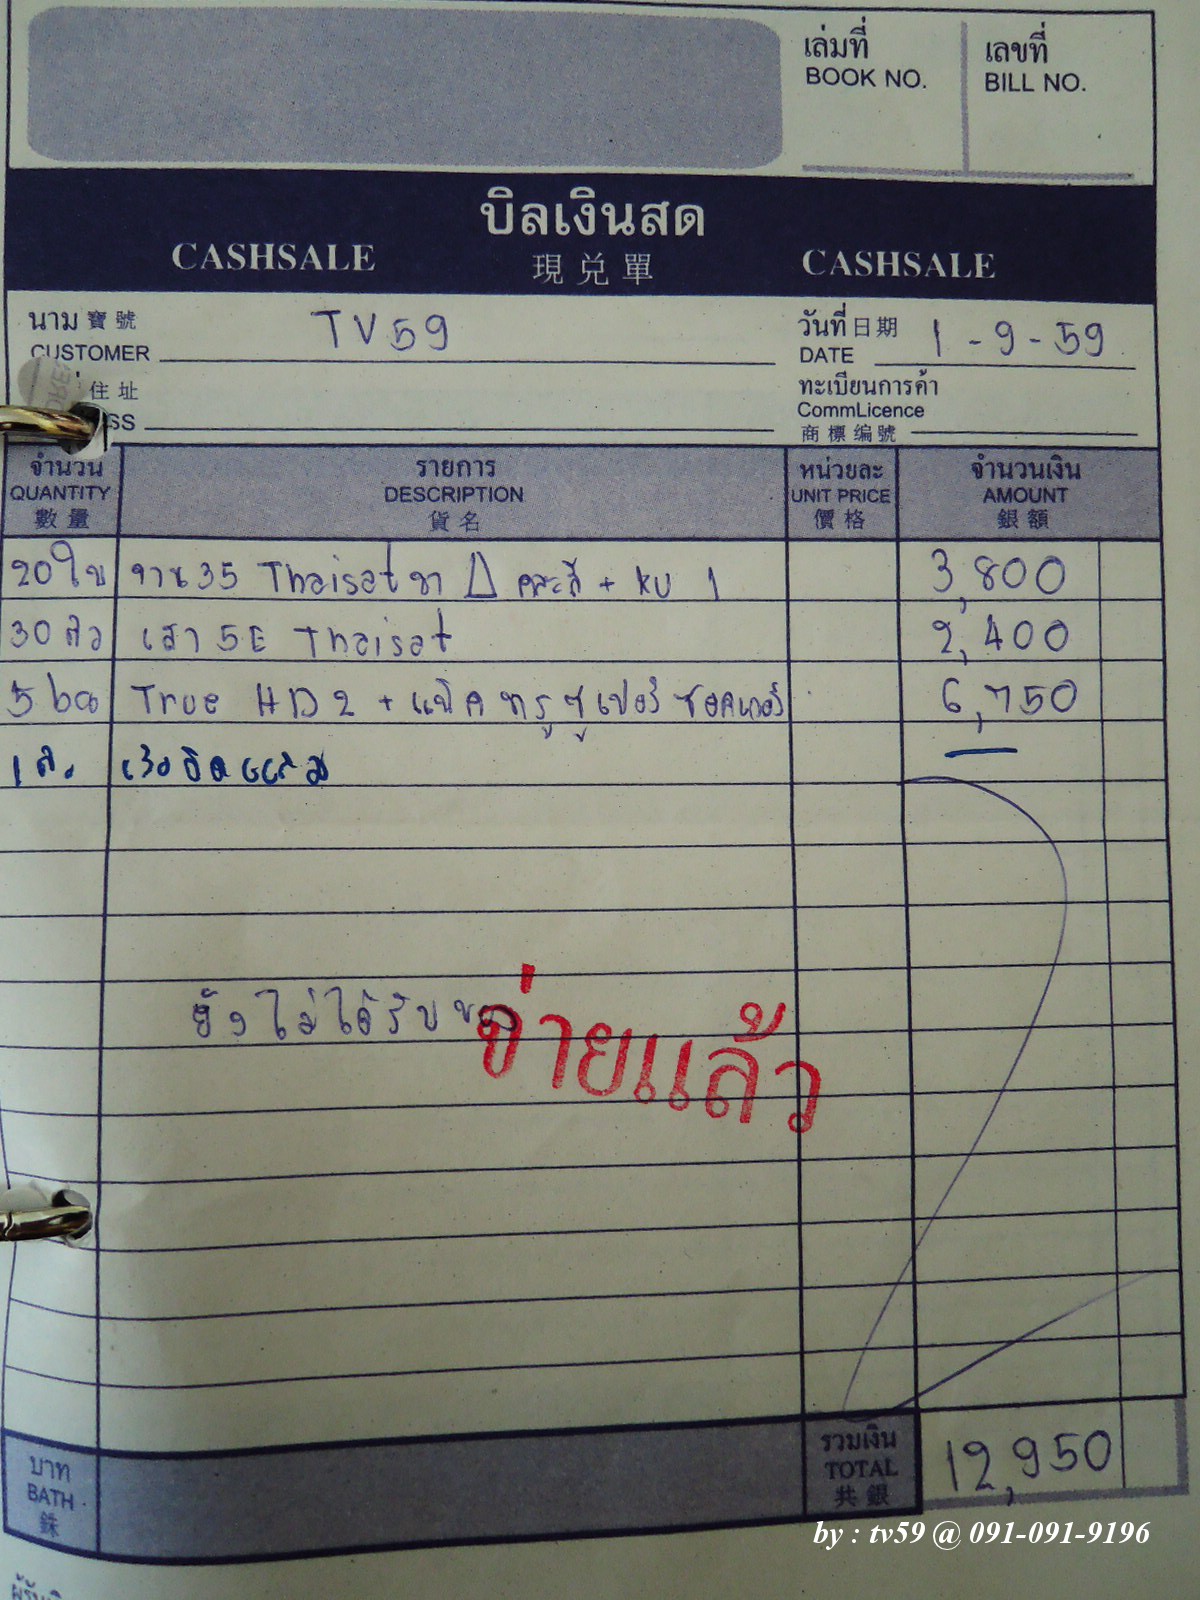 เล่มที่
BOOK NO.
เลขที่
BILL NO.
บิลเงินสด
CASHSALE 現兌單 CASHSALE
นาม 寶號
CUSTOMER TV59
วันที่ 日期
DATE 1-9-59
住址
SS
ทะเบียนการค้า
CommLicence
商標编號
จำนวน รายการ หน่วยละ จำนวนเงิน
QUANTITY DESCRIPTION UNIT PRICE AMOUNT
數量 貨名 價格 銀額
20ใบ จาน35 Thaisat ขา + KU 1 3,800
30 เสา 5E Thaisat 2,400
5 True HD2 + แพ็ค ทรู ซูเปอร์ ซอคเกอร์ 6,750
1
ยังไม่ได้รับ
จ่ายแล้ว
บาท
BATH
銖
รวมเงิน
TOTAL 12,950
共銀
by : tv59 @ 091-091-9196